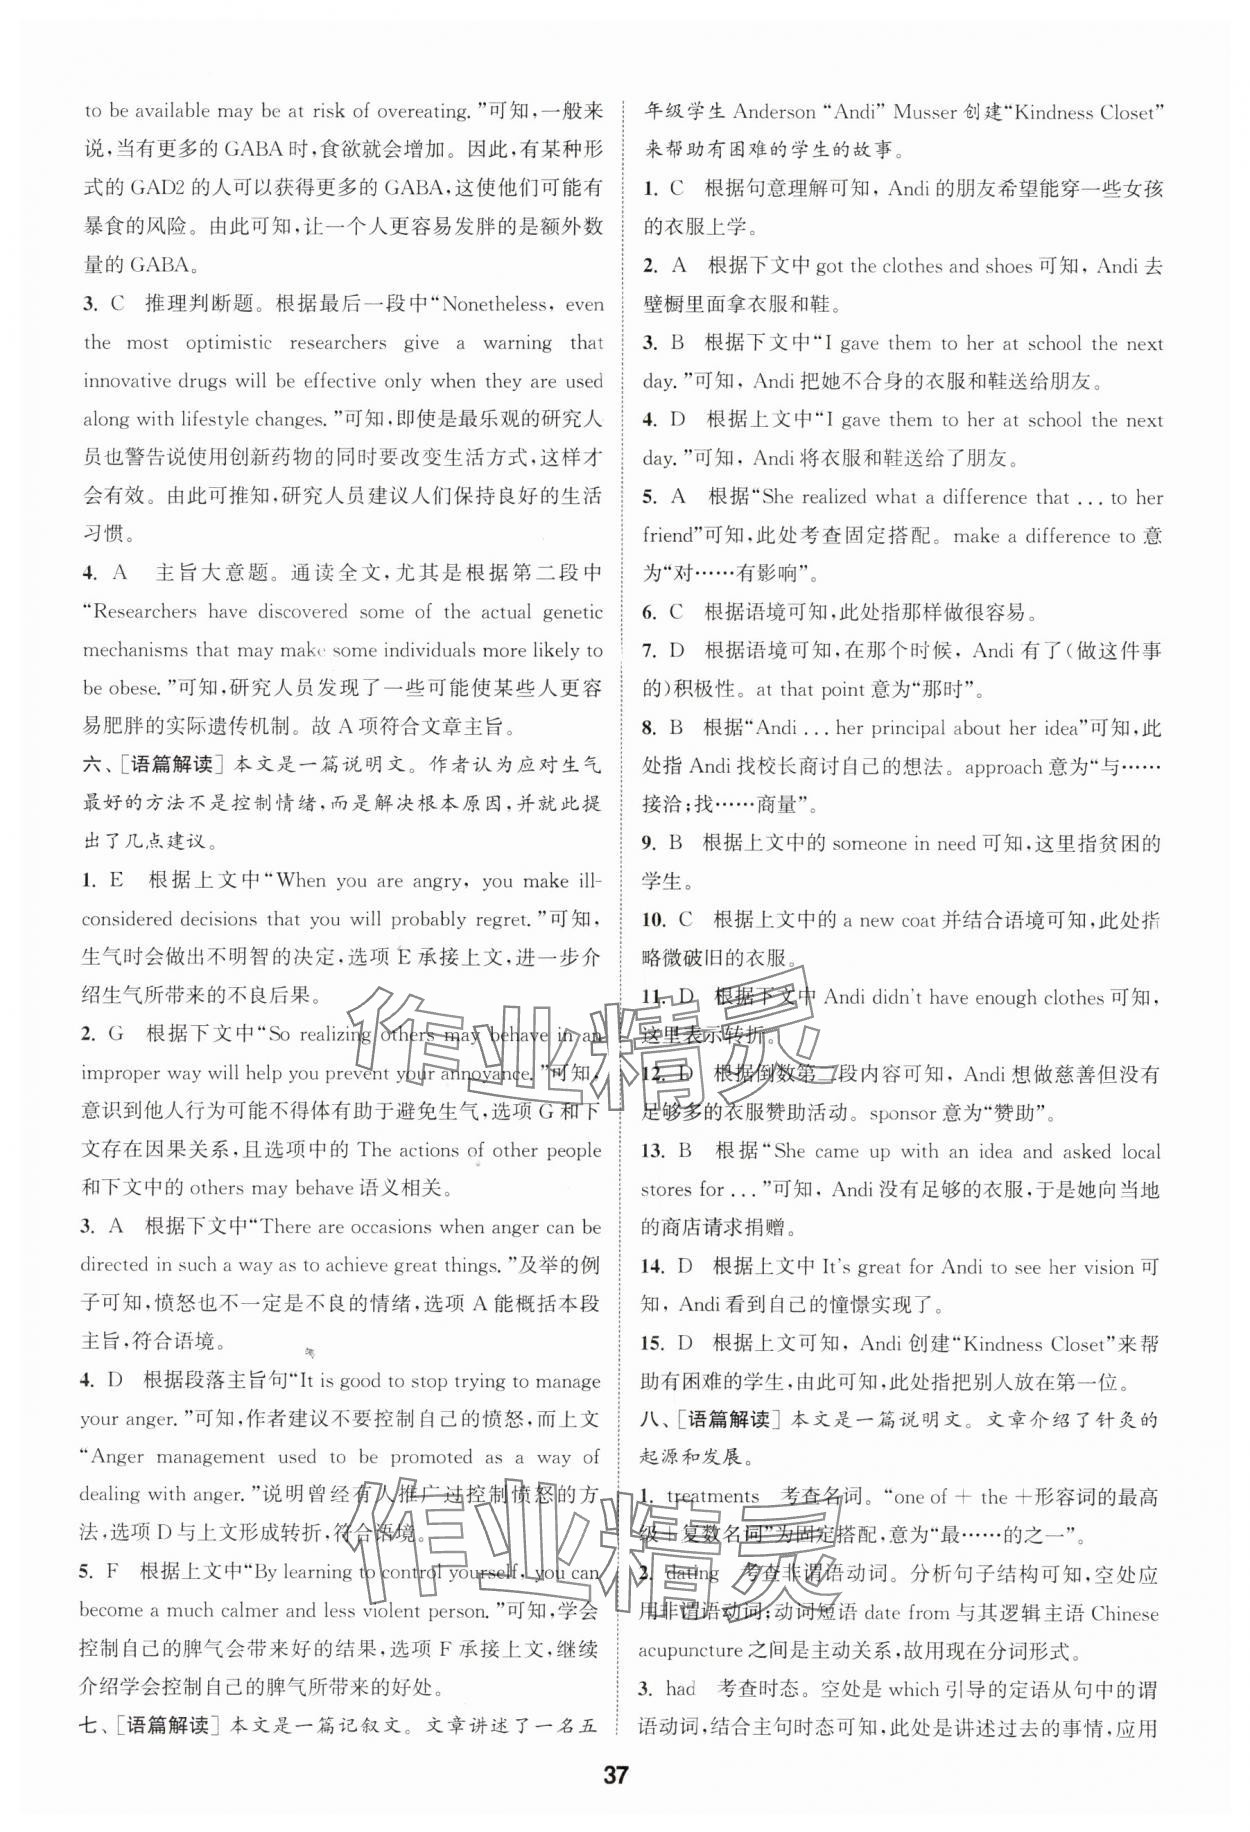 to be available may be at risk of overeating.”可知,一般来
说,当有更多的 GABA 时,食欲就会增加。因此,有某种形
式的 GAD2 的人可以获得更多的 GABA,这使他们可能有
暴食的风险。由此可知,让一个人更容易发胖的是额外数
量的 GABA。
3. C 推理判断题。根据最后一段中“Nonetheless, even
the most optimistic researchers give a warning that
innovative drugs will be effective only when they are used
along with lifestyle changes.”可知,即使是最乐观的研究人
员也警告说使用创新药物的同时要改变生活方式,这样才
会有效。由此可推知,研究人员建议人们保持良好的生活
习惯。
4. A 主旨大意题。通读全文,尤其是根据第二段中
“Researchers have discovered some of the actual genetic
mechanisms that may make some individuals more likely to
be obese.”可知,研究人员发现了一些可能使某些人更容
易肥胖的实际遗传机制。故 A 项符合文章主旨。
六、[语篇解读] 本文是一篇说明文。作者认为应对生气
最好的方法不是控制情绪,而是解决根本原因,并就此提
出了几点建议。
1. E 根据上文中“When you are angry, you make ill-
considered decisions that you will probably regret.”可知,
生气时会做出不明智的决定,选项 E 承接上文,进一步介
绍生气所带来的不良后果。
2. G 根据下文中“So realizing others may behave in an
improper way will help you prevent your annoyance.”可知,
意识到他人行为可能不得体有助于避免生气,选项 G 和下
文存在因果关系,且选项中的 The actions of other people
和下文中的 others may behave 语义相关。
3. A 根据下文中“There are occasions when anger can be
directed in such a way as to achieve great things.”及举的例
子可知,愤怒也不一定是不良的情绪,选项 A 能概括本段
主旨,符合语境。
4. D 根据段落主旨句“It is good to stop trying to manage
your anger.”可知,作者建议不要控制自己的愤怒,而上文
“Anger management used to be promoted as a way of
dealing with anger.”说明曾经有人推广过控制愤怒的方
法,选项 D 与上文形成转折,符合语境。
5. F 根据上文中“By learning to control yourself, you can
become a much calmer and less violent person.”可知,学会
控制自己的脾气会带来好的结果,选项 F 承接上文,继续
介绍学会控制自己的脾气所带来的好处。
七、[语篇解读] 本文是一篇记叙文。文章讲述了一名五
年级学生 Anderson “Andi” Musser 创建“Kindness Closet”
来帮助有困难的学生的故事。
1. C 根据句意理解可知, Andi 的朋友希望能穿一些女孩
的衣服上学。
2. A 根据下文中 got the clothes and shoes 可知, Andi 去
壁橱里面拿衣服和鞋。
3. B 根据下文中“I gave them to her at school the next
day.”可知, Andi 把她不合身的衣服和鞋送给朋友。
4. D 根据上文中“I gave them to her at school the next
day.”可知, Andi 将衣服和鞋送给了朋友。
5. A 根据“She realized what a difference that ... to her
friend”可知,此处考查固定搭配。make a difference to 意
为“对……有影响”。
6. C 根据语境可知,此处指那样做很容易。
7. D 根据语境可知,在那个时候, Andi 有了(做这件事
的)积极性。at that point 意为“那时”。
8. B 根据“Andi ... her principal about her idea”可知,此
处指 Andi 找校长商讨自己的想法。approach 意为“与……
接洽;找……商量”。
9. B 根据上文中的 someone in need 可知,这里指贫困的
学生。
10. C 根据上文中的 a new coat 并结合语境可知,此处指
略微破旧的衣服。
11. D 根据下文中 Andi didn't have enough clothes 可知,
这里表示转折。
12. D 根据倒数第二段内容可知, Andi 想做慈善但没有
足够多的衣服赞助活动。sponsor 意为“赞助”。
13. B 根据“She came up with an idea and asked local
stores for ...”可知, Andi 没有足够的衣服,于是她向当地
的商店请求捐赠。
14. D 根据上文中 It's great for Andi to see her vision 可
知, Andi 看到自己的憧憬实现了。
15. D 根据上文可知, Andi 创建“Kindness Closet”来帮
助有困难的学生,由此可知,此处指把别人放在第一位。
八、[语篇解读] 本文是一篇说明文。文章介绍了针灸的
起源和发展。
1. treatments 考查名词。“one of + the +形容词的最高
级+复数名词”为固定搭配,意为“最……的之一”。
2. dating 考查非谓语动词。分析句子结构可知,空处应
用非谓语动词;动词短语 date from 与其逻辑主语 Chinese
acupuncture 之间是主动关系,故用现在分词形式。
3. had 考查时态。空处是 which 引导的定语从句中的谓
语动词,结合主句时态可知,此处是讲述过去的事情,应用
37
作业精灵
作业精灵